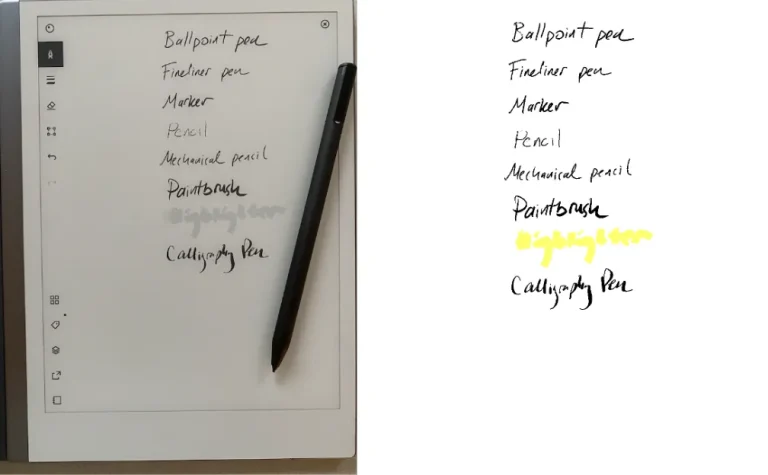 Ballpoint pen
Fineliner pen
Marker
Pencil
Mechanical pencil
Paintbrush
Highlighter
Calligraphy Pen
Ballpoint pen
Fineliner pen
Marker
Pencil
Mechanical pencil
Paintbrush
Highlighter
Calligraphy Pen